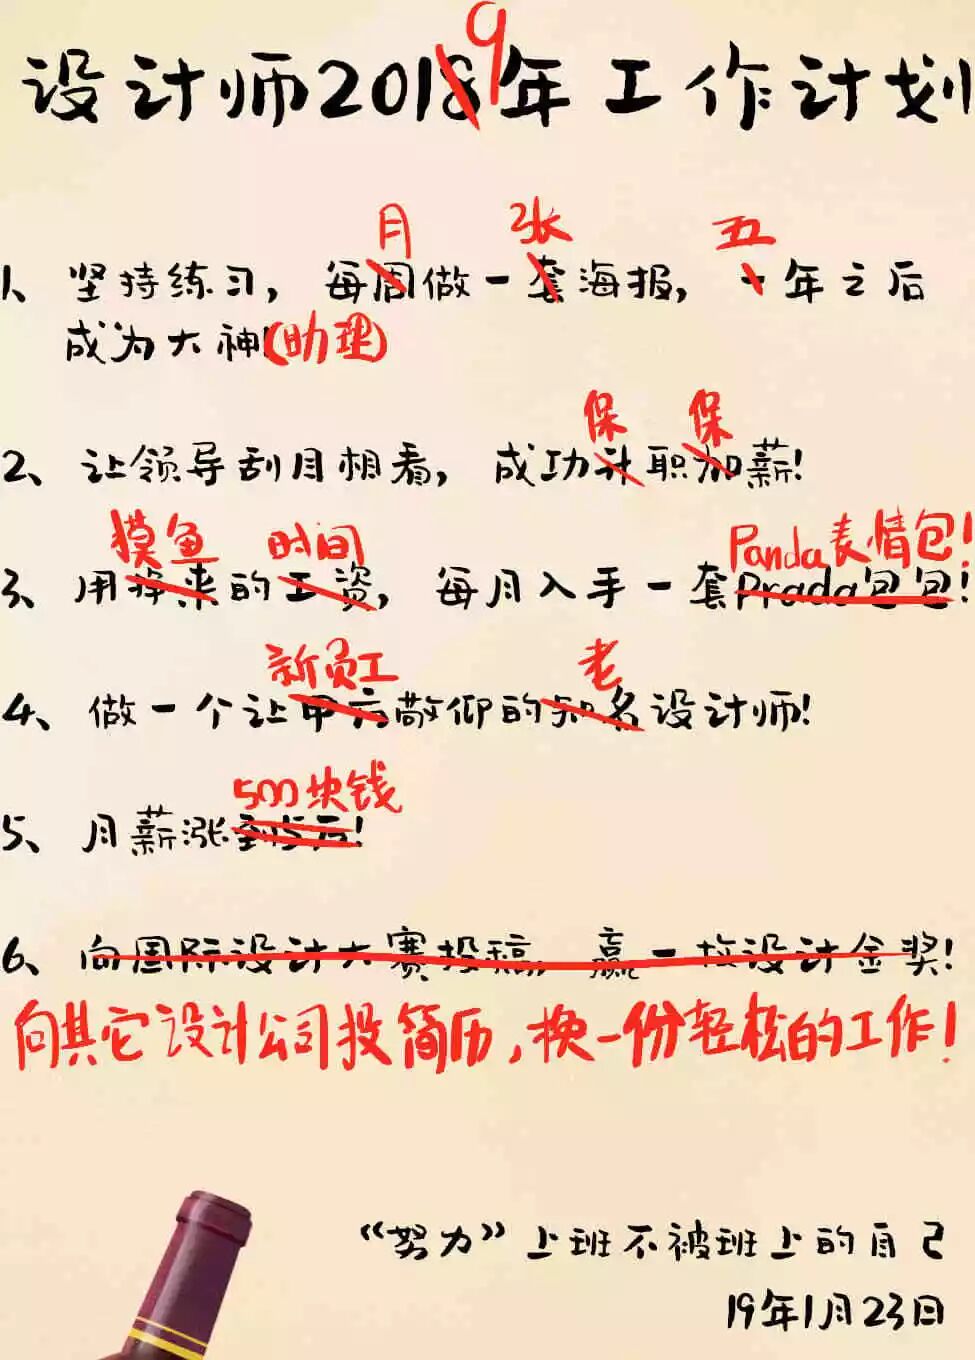 9
设计师2018年工作计划
月 张 五
1、坚持练习，每周做一套海报，一年之后
成为大神!(助理)
保 保
2、让领导刮目相看，成功升职加薪!
摸鱼 时间 Panda表情包!
3、用挣来的工资，每月入手一套Prada包包!
新员工 老
4、做一个让甲方敬仰的知名设计师!
500块钱
5、月薪涨到15万!
6、向国际设计大赛投稿，赢一枚设计金奖!
向其它设计公司投简历，换一份轻松的工作!
“努力”上班不被班上的自己
19年1月23日